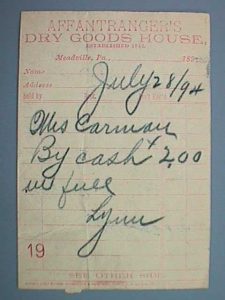 AFFANTRANGER'S
DRY GOODS HOUSE,
ESTABLISHED
Meadville, Pa., 189
Name
July 28/94
Address
Sold by
Mrs Carman
By cash 2,00
in full
Lynn
19
SEE OTHER SIDE.